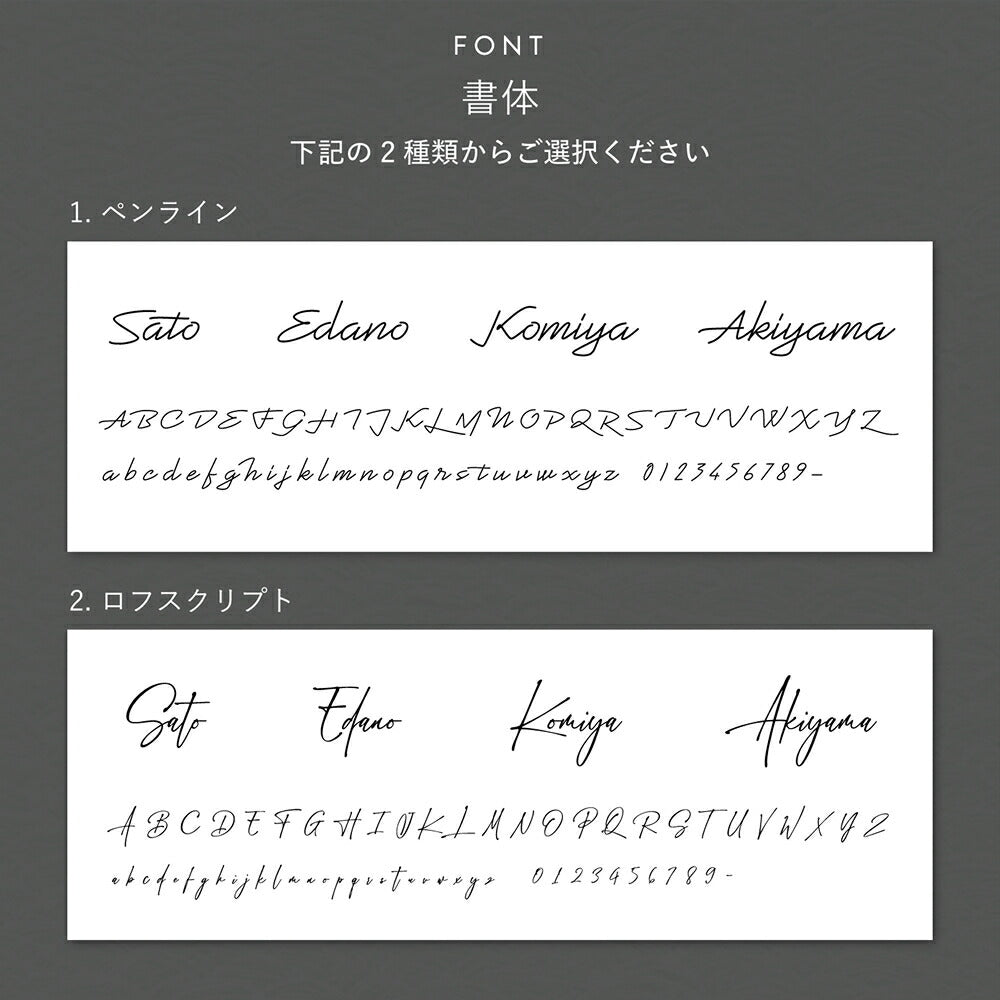 FONT
書体
下記の2種類からご選択ください
1. ペンライン
Sato Edano Komiya Akiyama
ABCDEFGHIJKLMNOPQRSTUVWXYZ
abcdefghijklmnopqrstuvwxyz 0123456789-
2. ロフスクリプト
Sato Edano Komiya Akiyama
ABCDEFGHIJKLMNOPQRSTUVWXYZ
abcdefghijklmnopqrstuvwxyz 0123456789-